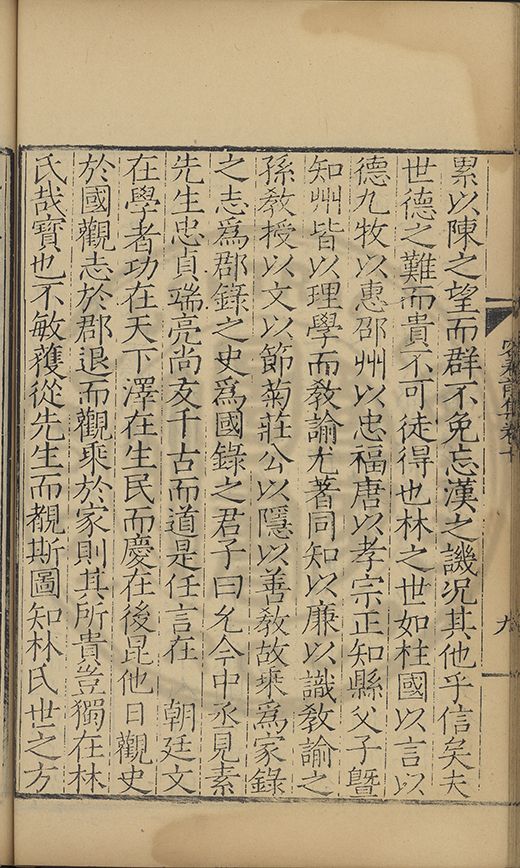 累以陳之望而群不免忘漢之譏况其他乎信矣夫
世德之難而貴不可徒得也林之世如柱國以言以
德九牧以惠邵州以忠福唐以孝宗正知縣父子曁
知州皆以理學而敎諭尤著同知以廉以識敎諭之
孫敎授以文以節菊莊公以隱以善敎故乗爲家錄
之志爲郡錄之史爲國錄之君子曰允今中丞見素
先生忠貞端亮尚友千古而道是任言在　朝廷文
在學者功在天下澤在生民而慶在後昆他日觀史
於國觀志於郡退而觀乗於家則其所貴豈獨在林
氏哉寳也不敏獲從先生而覩斯圖知林氏世之方
卷十
九